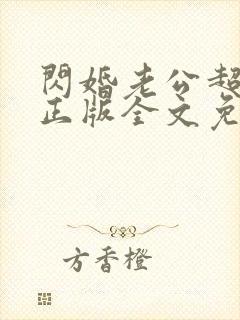 閃婚老公超
正版全文免
方香橙